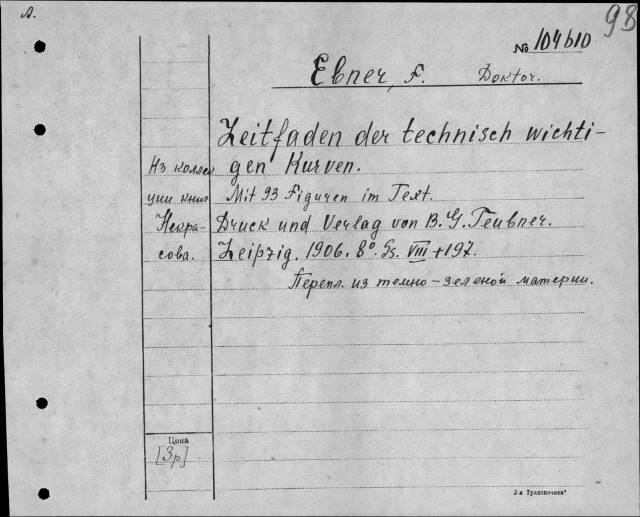 А.
98
№ 104610
Ebner, F. Doktor.
Leitfaden der technisch wichti-
Из коллек gen Kurven.
ции книг Mit 93 Figuren im Text.
Некра- Druck und Verlag von B. G. Teubner.
сова. Leipzig. 1906. 8°. Ss. VIII + 197.
Перепл. из темно-зеленой материи.
Цена
[3р]
3-я Транспечати"